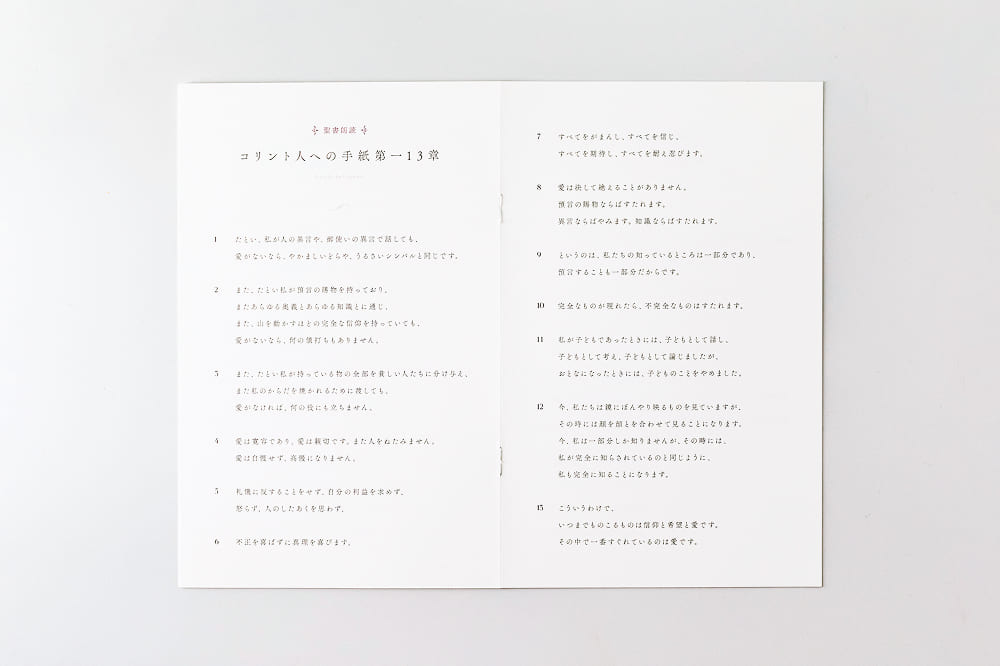 聖書朗読
コリント人への手紙第一13章
1 たとい、私が人の異言や、御使いの異言で話しても、
愛がないなら、やかましいどらや、うるさいシンバルと同じです。
2 また、たとい私が預言の賜物を持っており、
またあらゆる奥義とあらゆる知識とに通じ、
また、山を動かすほどの完全な信仰を持っていても、
愛がないなら、何の値打ちもありません。
3 また、たとい私が持っている物の全部を貧しい人たちに分け与え、
また私のからだを焼かれるために渡しても、
愛がなければ、何の役にも立ちません。
4 愛は寛容であり、愛は親切です。また人をねたみません。
愛は自慢せず、高慢になりません。
5 礼儀に反することをせず、自分の利益を求めず、
怒らず、人のしたあくを思わず、
6 不正を喜ばずに真理を喜びます。
7 すべてをがまんし、すべてを信じ、
すべてを期待し、すべてを耐え忍びます。
8 愛は決して絶えることがありません。
預言の賜物ならばすたれます。
異言ならばやみます。知識ならばすたれます。
9 というのは、私たちの知っているところは一部分であり、
預言することも一部分だからです。
10 完全なものが現れたら、不完全なものはすたれます。
11 私が子どもであったときには、子どもとして話し、
子どもとして考え、子どもとして論じましたが、
おとなになったときには、子どものことをやめました。
12 今、私たちは鏡にぼんやり映るものを見ていますが、
その時には顔を顔とを合わせて見ることになります。
今、私は一部分しか知りませんが、その時には、
私が完全に知られているのと同じように、
私も完全に知ることになります。
13 こういうわけで、
いつまでものこるものは信仰と希望と愛です。
その中で一番すぐれているのは愛です。